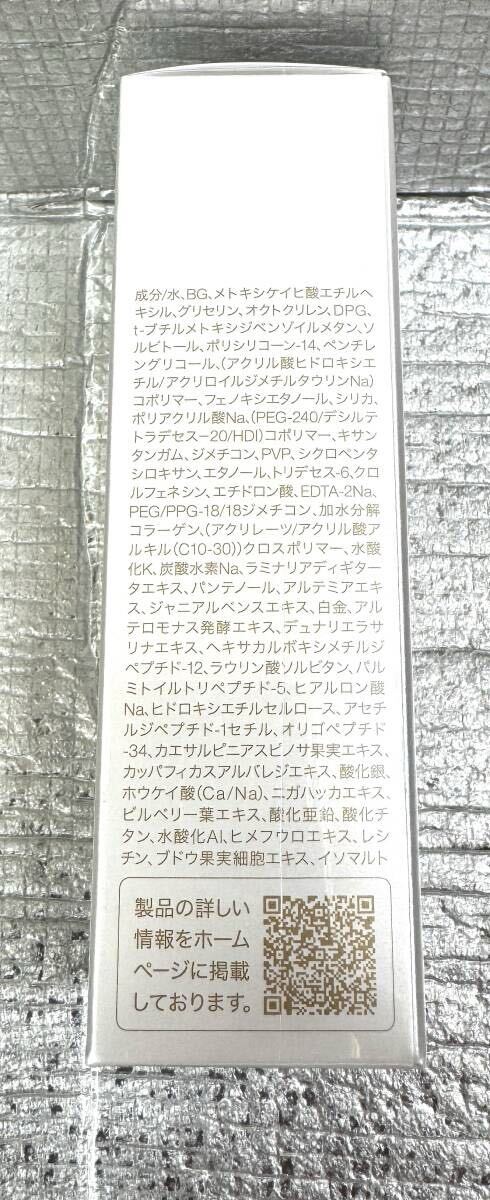 成分/水、BG、メトキシケイヒ酸エチルヘ
キシル、グリセリン、オクトクリレン、DPG、
t-ブチルメトキシジベンゾイルメタン、ソ
ルビトール、ポリシリコーン-14、ペンチレ
ングリコール、(アクリル酸ヒドロキシエ
チル/アクリロイルジメチルタウリンNa)
コポリマー、フェノキシエタノール、シリカ、
ポリアクリル酸Na、(PEG-240/デシルテ
トラデセス-20/HDI)コポリマー、キサン
タンガム、ジメチコン、PVP、シクロペンタ
シロキサン、エタノール、トリデセス-6、クロ
ルフェネシン、エチドロン酸、EDTA-2Na、
PEG/PPG-18/18ジメチコン、加水分解
コラーゲン、(アクリレーツ/アクリル酸ア
ルキル(C10-30))クロスポリマー、水酸
化K、炭酸水素Na、ラミナリアディギター
タエキス、パンテノール、アルテミアエキ
ス、ジャニアルベンスエキス、白金、アル
テロモナス発酵エキス、デュナリエラサ
リナエキス、ヘキサカルボキシメチルジ
ペプチド-12、ラウリン酸ソルビタン、パル
ミトイルトリペプチド-5、ヒアルロン酸
Na、ヒドロキシエチルセルロース、アセチ
ルジペプチド-1セチル、オリゴペプチド
-34、カエサルピニアスピノサ果実エキス、
カッパフィカスアルバレジエキス、酸化銀、
ホウケイ酸(Ca/Na)、ニガハッカエキス、
ビルベリー葉エキス、酸化亜鉛、酸化チ
タン、水酸化Al、ヒメフウロエキス、レシ
チン、ブドウ果実細胞エキス、イソマルト
製品の詳しい
情報をホーム
ページに掲載
しております。